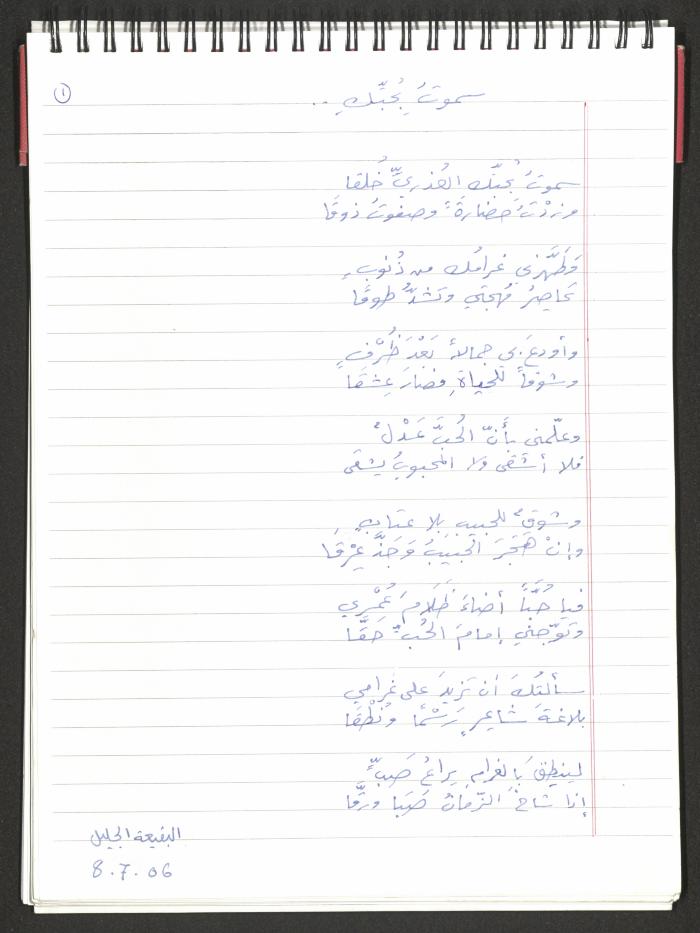 ١
سموتُ بحُبِّكِ ..
سموتُ بحُبّكِ العُذريِّ خُلقا
وزِدْتُ حَضارةً وصفوتُ ذوقًا
وَطَهَّرني غرامُك من ذُنوبٍ
تحاصِرُ مُهجتي وتَشدُّ طوقًا
وأودعَ بي جمالاً بَعْدَ ظُرْفٍ
وشوقاً للحياةِ فصَارَ عِشقَا
وعلّمني بأَنّ الحُبَّ عَدْلٌ
فلا أشقى ولا المحبوبُ يشقى
وشوقٌ للحبيبِ بلا عتابٍ
وإنْ هَجَرَ الحبيبُ وَجَذَّ عِرْقَا
فيا حُبَّاً أضاءَ ظَلَامَ عُمْري
وتَوّجني إمامَ الحُبِّ حَقَّا
سألتُكَ أن تَزيدَ على غرامي
بلاغةَ شاعرٍ رَسْمًا ونُطْقَا
لينطِقَ بالغرامِ يراعُ صَبٍّ
إذا شاخَ الزّمانُ صَبَا ورَقَّا
البقيعة الجليل
8.7.06